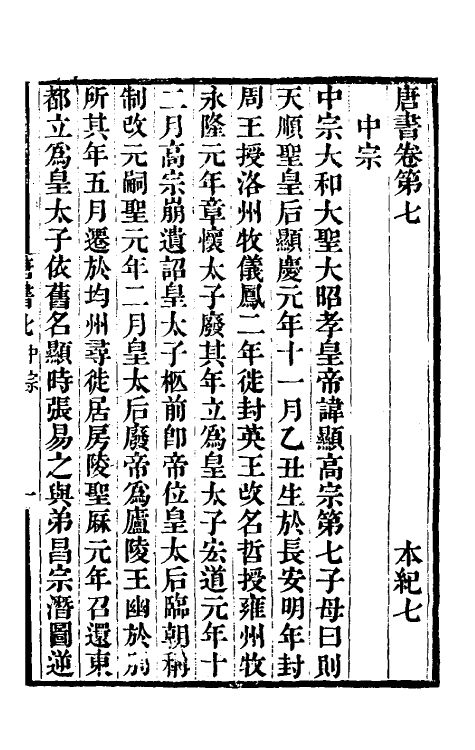 唐書卷第七 本紀七
中宗
中宗大和大聖大昭孝皇帝諱顯高宗第七子母曰則
天順聖皇后顯慶元年十一月乙丑生於長安明年封
周王授洛州牧儀鳳二年徙封英王改名哲授雍州牧
永隆元年章懷太子廢其年立爲皇太子宏道元年十
二月高宗崩遺詔皇太子柩前卽帝位皇太后臨朝稱
制改元嗣聖元年二月皇太后廢帝爲廬陵王幽於別
所其年五月遷於均州尋徙居房陵聖厤元年召還東
都立爲皇太子依舊名顯時張易之與弟昌宗潛圖逆
唐書七 中宗 一